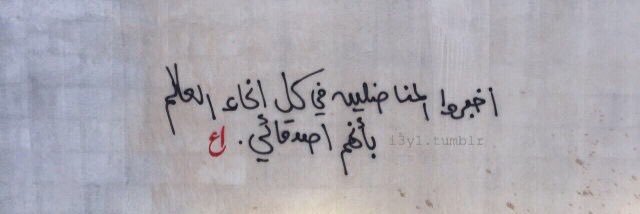 اخبروا المناضلين في كل انحاء العالم
بأنهم اصدقائي .
اع
i3yl.tumblr